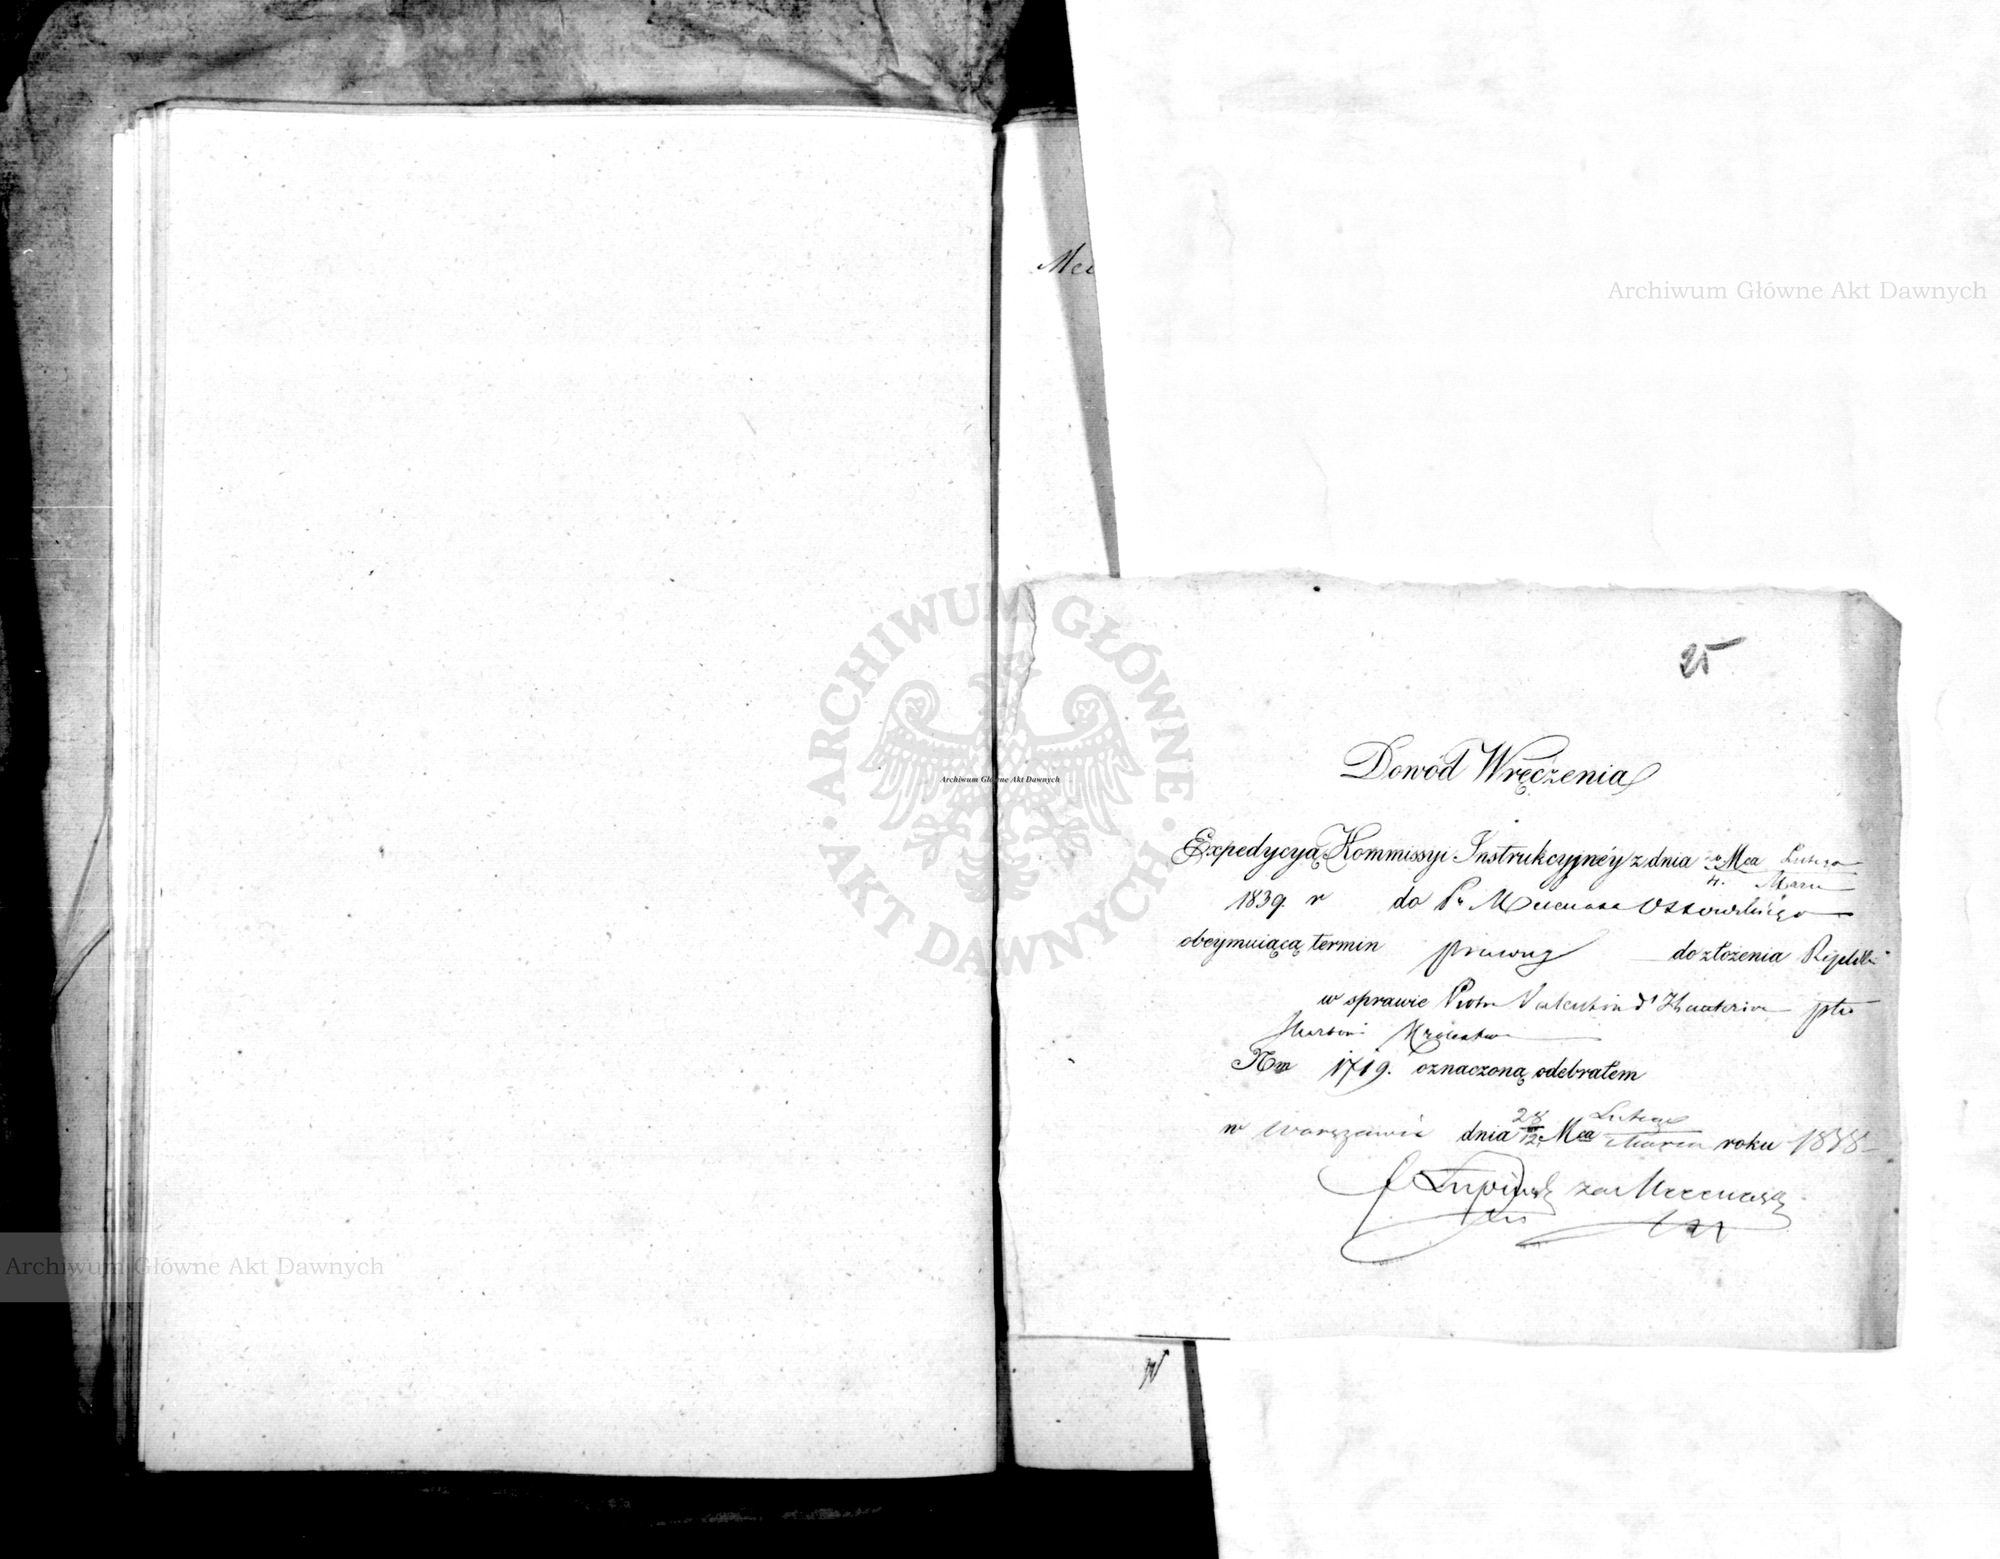 Mec
Archiwum Główne Akt Dawnych
25
Dowód Wręczenia
Expedycyą Kommissyi Instrukcyjnéy z dnia Mca Lutego
4. Marca
1839. r do Pa Mecenasa Ossowskiego
obeymuiącą termin prawny do złożenia Repliki
w sprawie Piotra Valentin d' pko
Skarbowi Królestwa
Nm 1719. oznaczoną odebrałem
w Warszawie dnia 28/12 Mca Lutego/Marca roku 1838
za Mecenasa
ARCHIWUM GŁÓWNE · AKT DAWNYCH ·
Archiwum Główne Akt Dawnych
Archiwum Główne Akt Dawnych